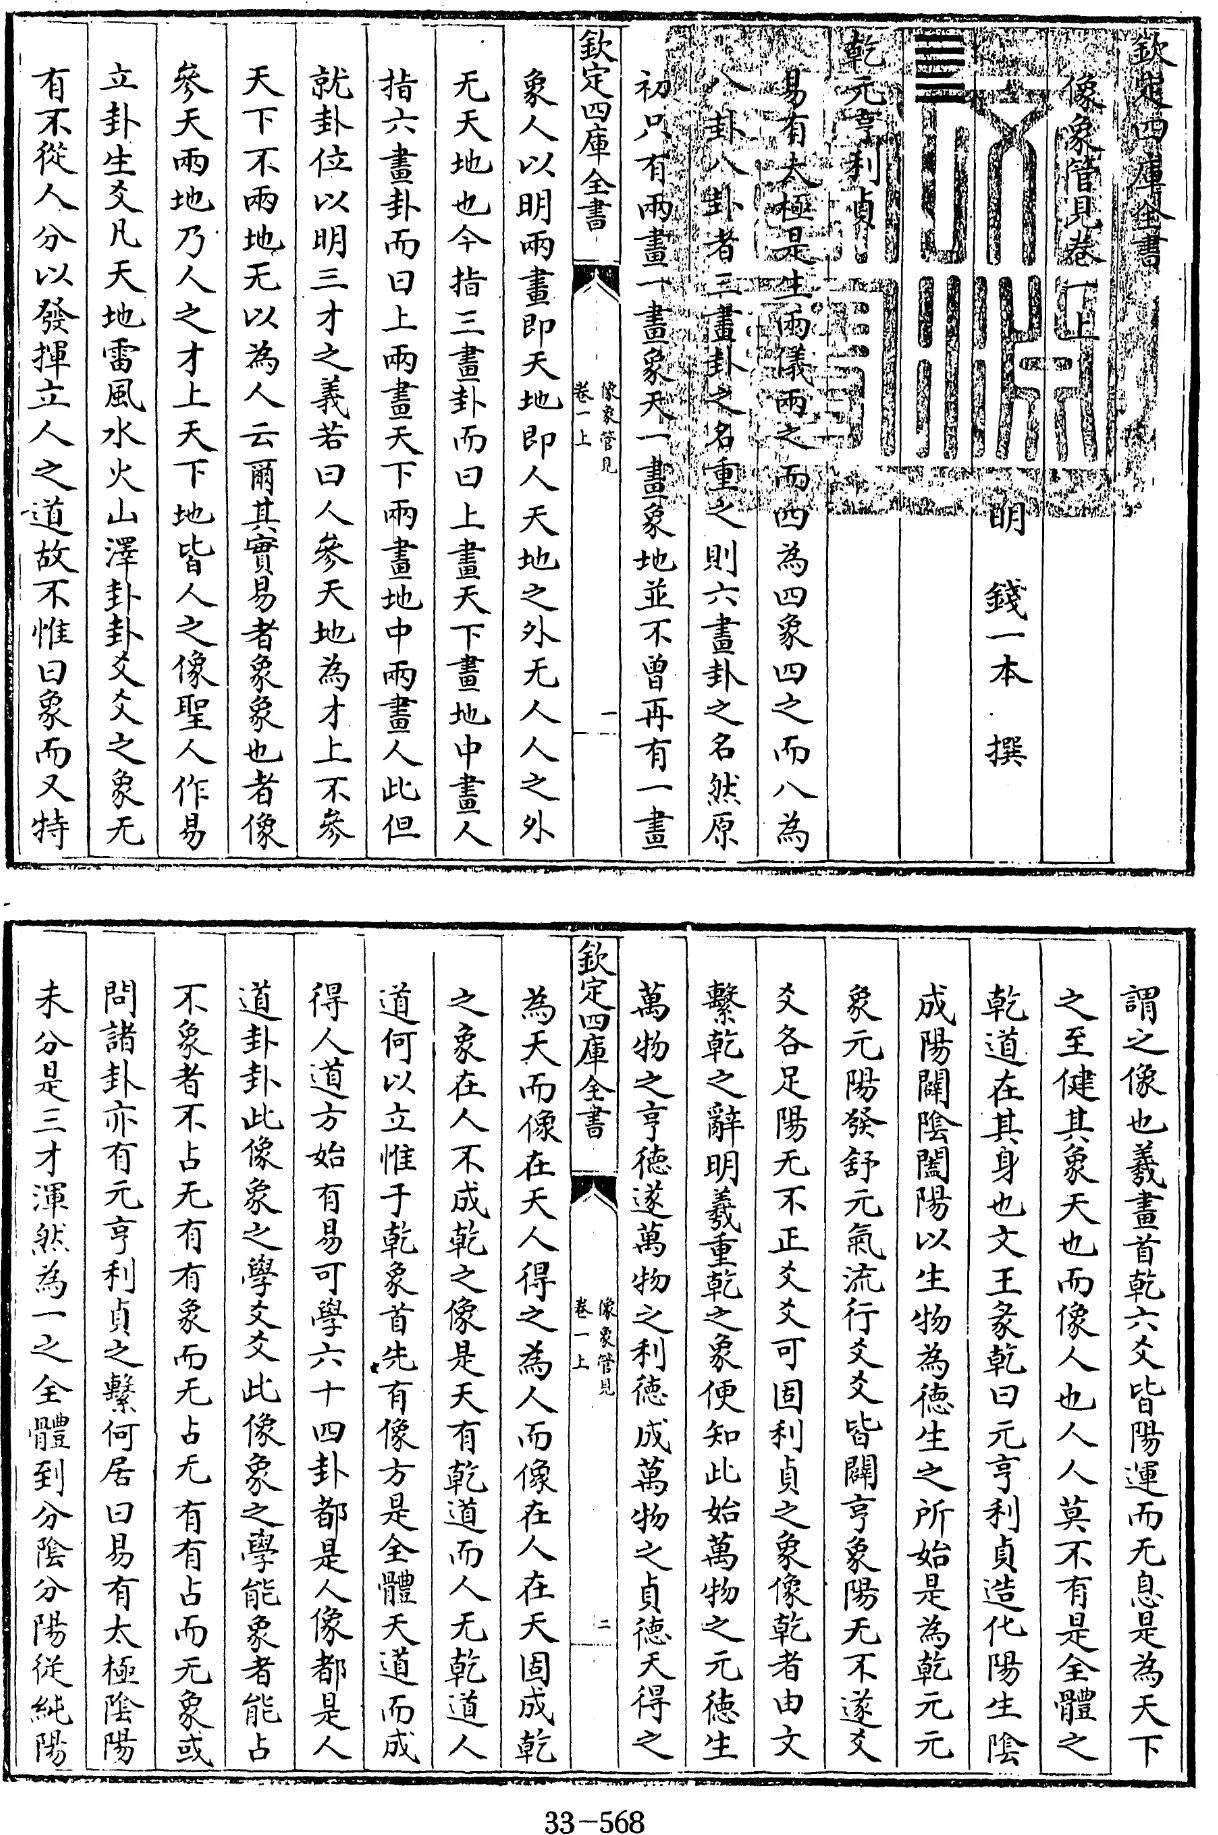 欽定四庫全書
像象管見卷一上
明 錢一本 撰
乾元亨利貞
易有太極是生兩儀兩之而四為四象四之而八為
八卦八卦者三畫卦之名重之則六畫卦之名然原
初只有兩畫一畫象天一畫象地並不曾再有一畫
欽定四庫全書
像象管見
卷一上
一
象人以明兩畫即天地即人天地之外无人人之外
无天地也今指三畫卦而曰上畫天下畫地中畫人
指六畫卦而曰上兩畫天下兩畫地中兩畫人此但
就卦位以明三才之義若曰人參天地為才上不參
天下不兩地无以為人云爾其實易者象象也者像
參天兩地乃人之才上天下地皆人之像聖人作易
立卦生爻凡天地雷風水火山澤卦卦爻爻之象无
有不從人分以發揮立人之道故不惟曰象而又特
謂之像也羲畫首乾六爻皆陽運而无息是為天下
之至健其象天也而像人也人人莫不有是全體之
乾道在其身也文王彖乾曰元亨利貞造化陽生陰
成陽闢陰闔陽以生物為德生之所始是為乾元元
象元陽發舒元氣流行爻爻皆闢亨象陽无不遂爻
爻各足陽无不正爻爻可固利貞之象像乾者由文
繫乾之辭明羲重乾之象便知此始萬物之元德生
萬物之亨德遂萬物之利德成萬物之貞德天得之
欽定四庫全書
像象管見
卷一上
二
為天而像在天人得之為人而像在人在天固成乾
之象在人不成乾之像是天有乾道而人无乾道人
道何以立惟于乾象首先有像方是全體天道而成
得人道方始有易可學六十四卦都是人像都是人
道卦卦此像象之學爻爻此像象之學能象者能占
不象者不占无有有象而无占无有有占而无象或
問諸卦亦有元亨利貞之繫何居曰易有太極陰陽
未分是三才渾然為一之全體到分陰分陽從純陽
33-568